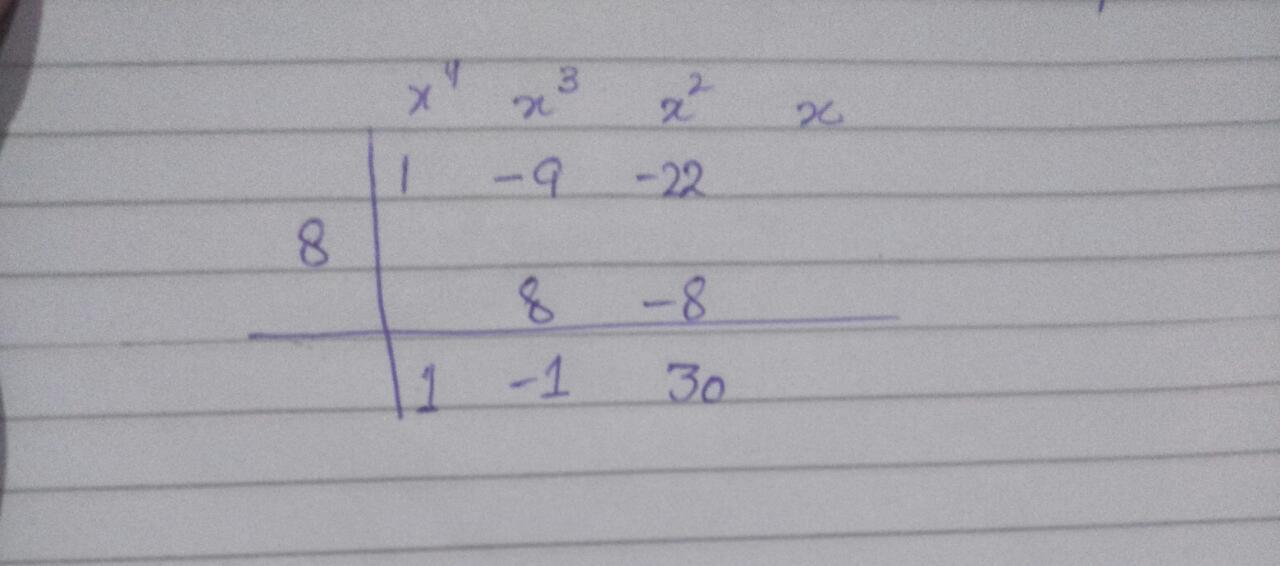 x⁴ x³ x² x
1 -9 -22
8
8 -8
1 -1 30